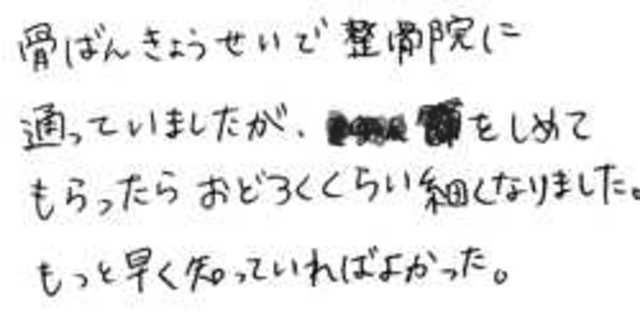 骨ばんきょうせいで整骨院に
通っていましたが、をしめて
もらったらおどろくくらい細くなりました。
もっと早く知っていればよかった。